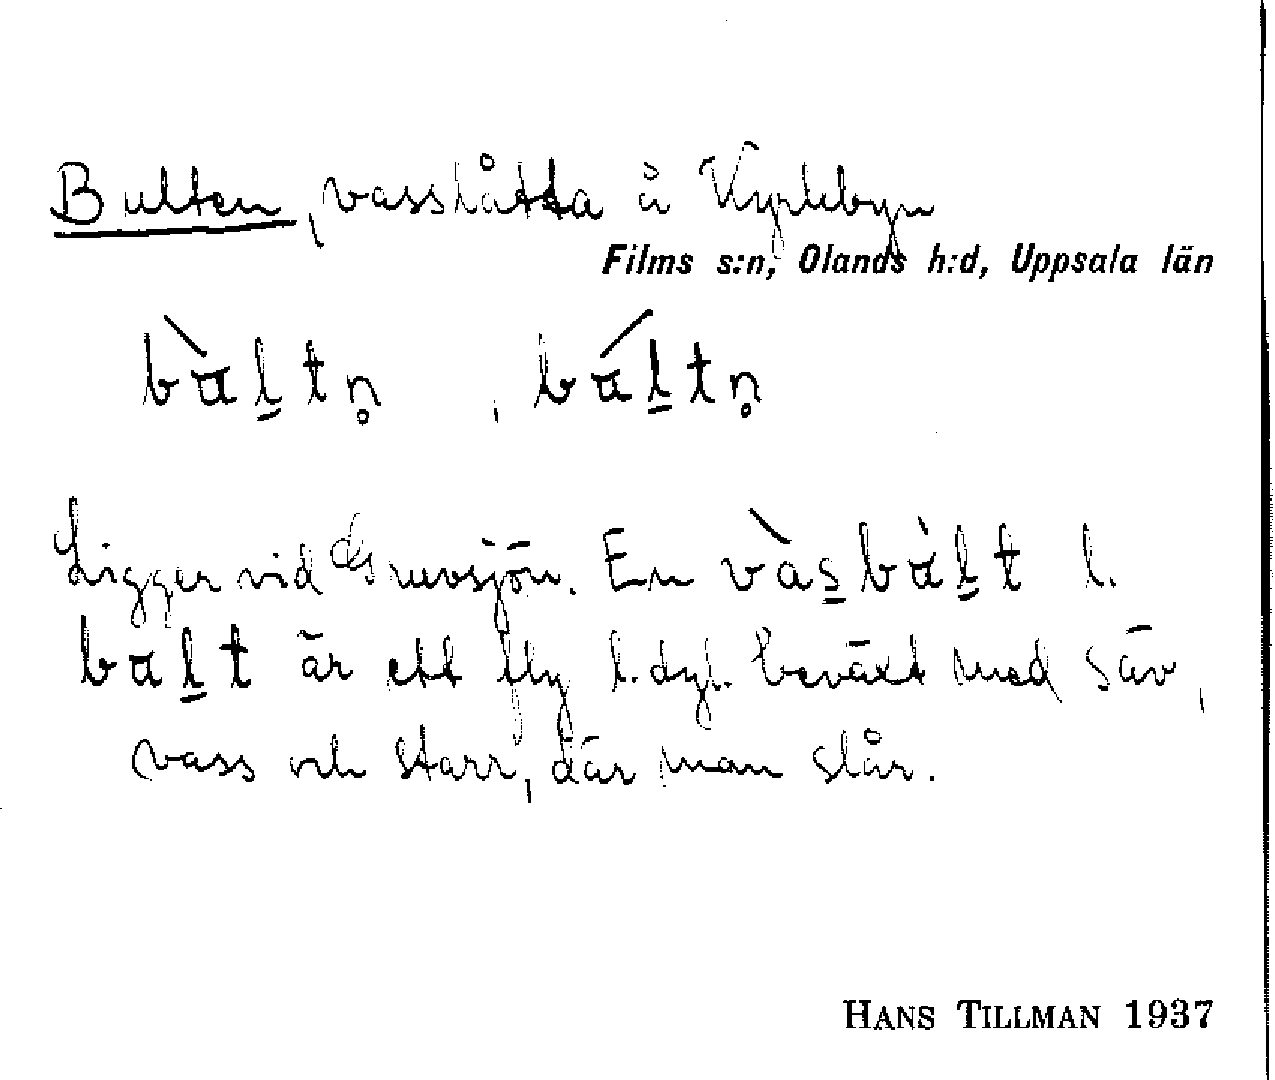 Bulten, vasslåtta å Kyrkbyn
Films s:n, Olands h:d, Uppsala län
bàl̲tn̥ , bál̲tn̥
Ligger vid Gruvsjön. En vàs̲bàl̲t l.
bal̲t är ett fly l. dyl. beväxt med säv,
vass och starr, där man slår.
HANS TILLMAN 1937